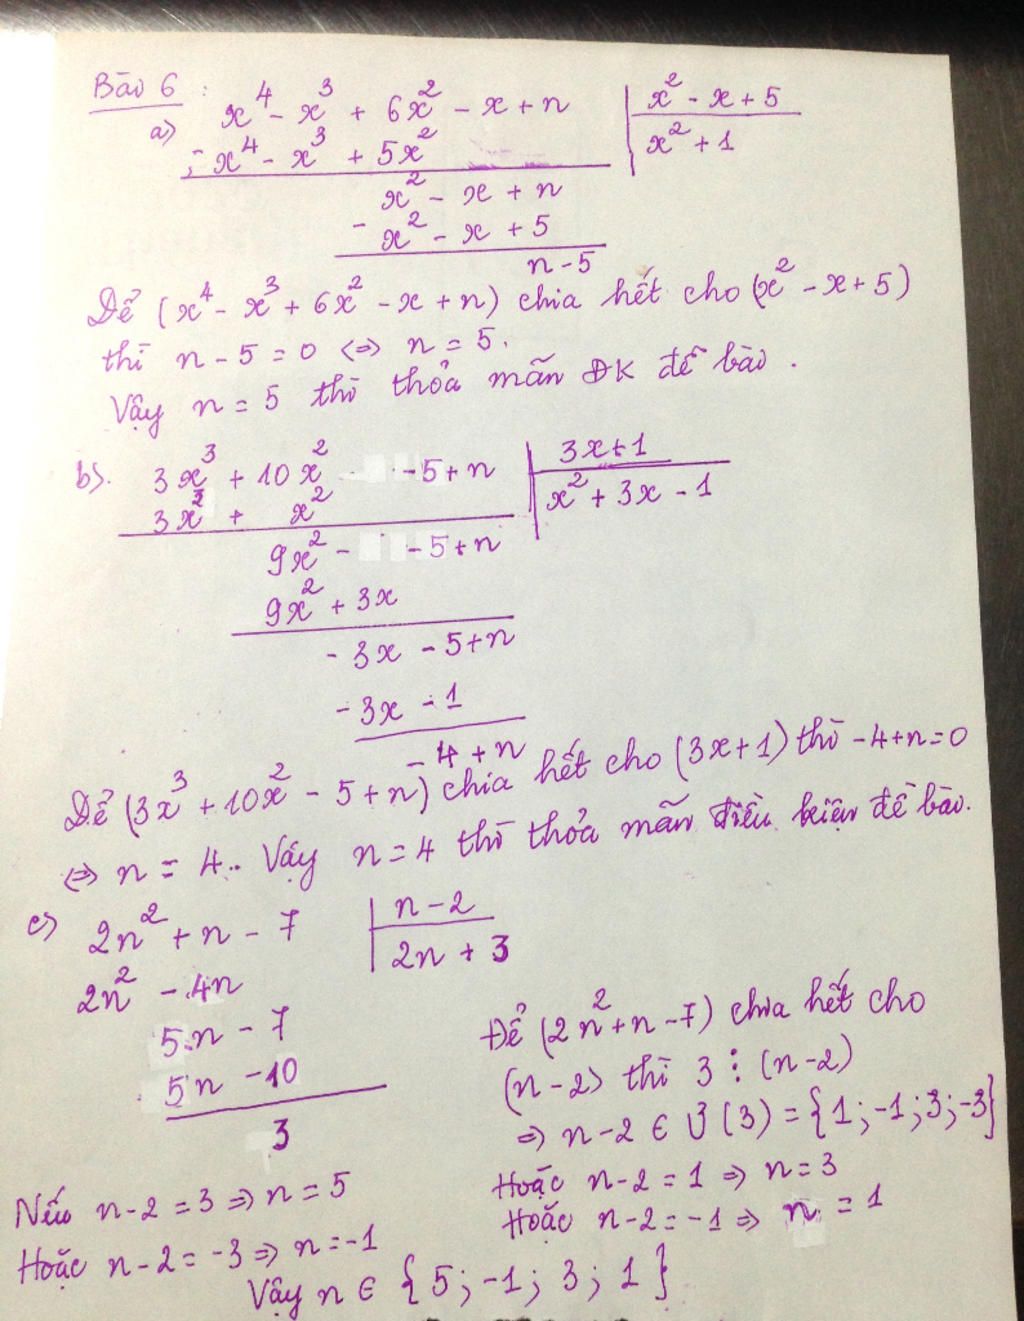 Bài 6 :
a) x⁴ - x³ + 6x² - x + n | x² - x + 5
- x⁴ - x³ + 5x² | x² + 1
x² - x + n
- x² - x + 5
n - 5
Để (x⁴ - x³ + 6x² - x + n) chia hết cho (x² - x + 5)
thì n - 5 = 0 <=> n = 5.
Vậy n = 5 thì thỏa mãn ĐK đề bài .
b). 3x³ + 10x² - 5 + n | 3x + 1
3x³ + x² | x² + 3x - 1
9x² - - 5 + n
9x² + 3x
- 3x - 5 + n
- 3x - 1
- 4 + n
Để (3x³ + 10x² - 5 + n) chia hết cho (3x + 1) thì - 4 + n = 0
<=> n = 4 .. Vậy n = 4 thì thỏa mãn điều kiện đề bài.
c) 2n² + n - 7 | n - 2
2n² - 4n | 2n + 3
5n - 7
5n - 10
3
Để (2n² + n - 7) chia hết cho
(n - 2) thì 3 ⋮ (n - 2)
=> n - 2 ∈ Ư (3) = {1 ; -1 ; 3 ; -3}
Hoặc n - 2 = 1 => n = 3
Hoặc n - 2 = -1 => n = 1
Nếu n - 2 = 3 => n = 5
Hoặc n - 2 = -3 => n = -1
Vậy n ∈ {5 ; -1 ; 3 ; 1}